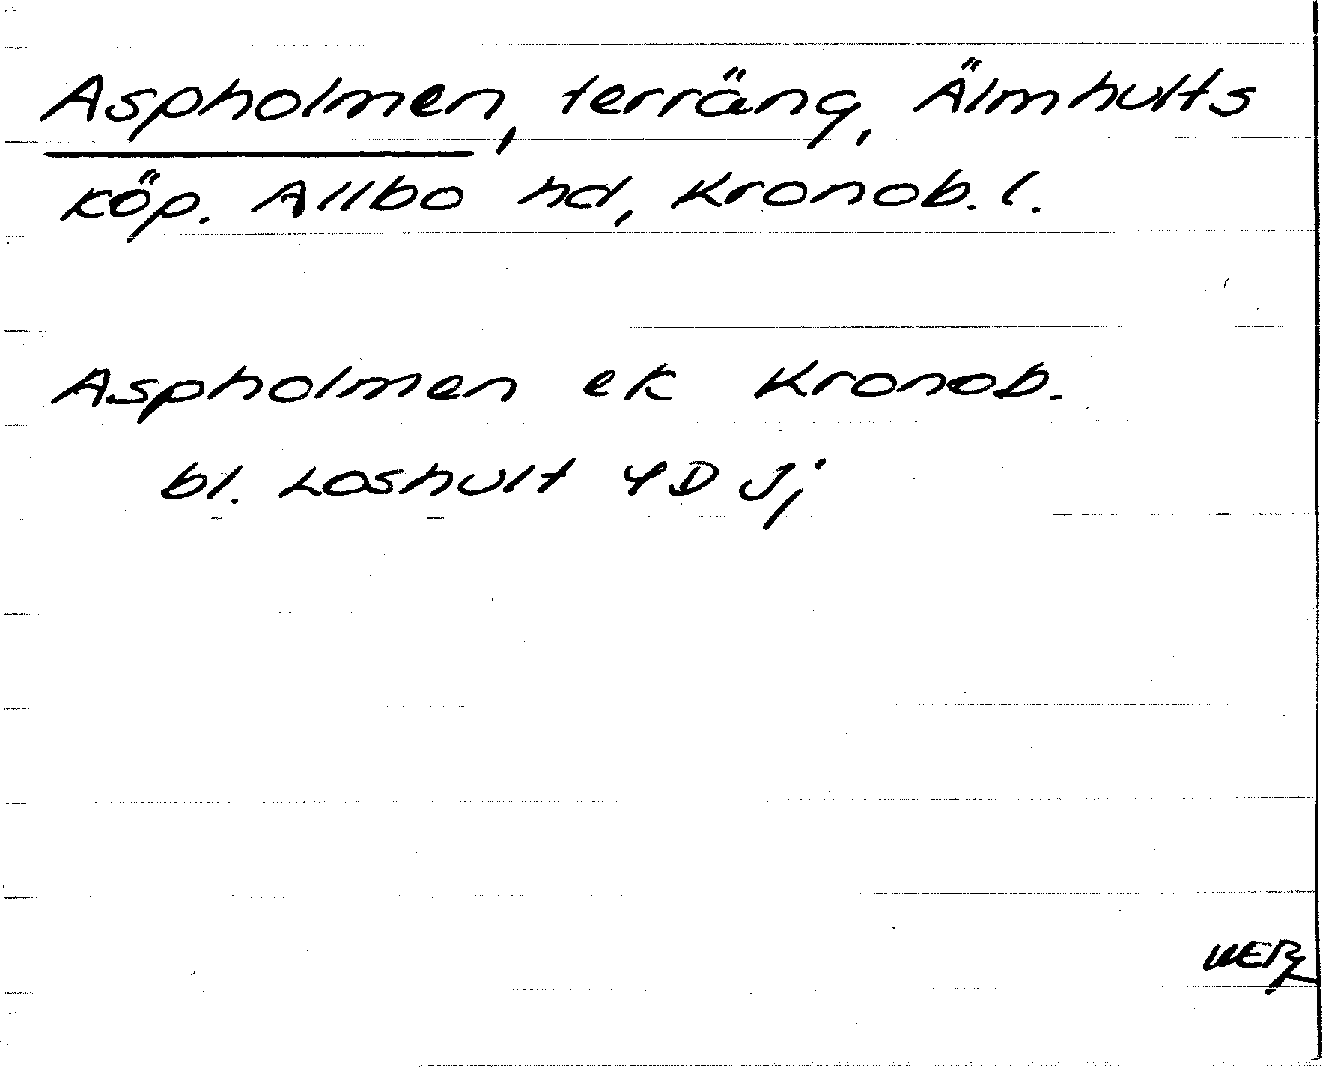 Aspholmen, terräng, Älmhults
köp. Allbo hd, Kronob. l.
Aspholmen ek Kronob.
bl. Loshult 4D Jj